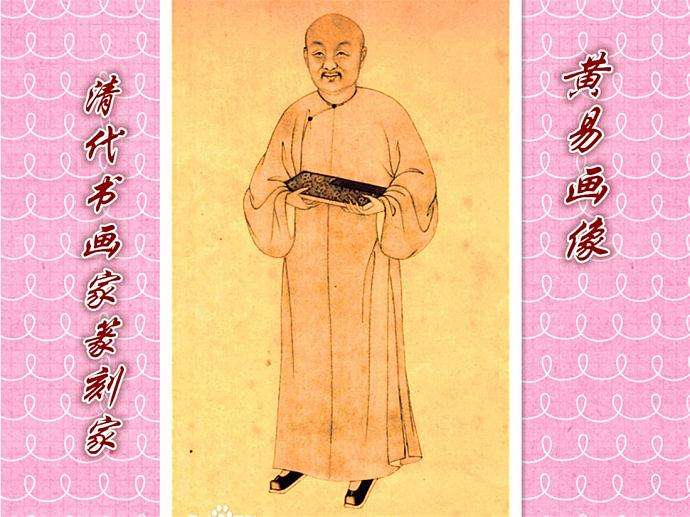 黄易画像
清代书画家篆刻家